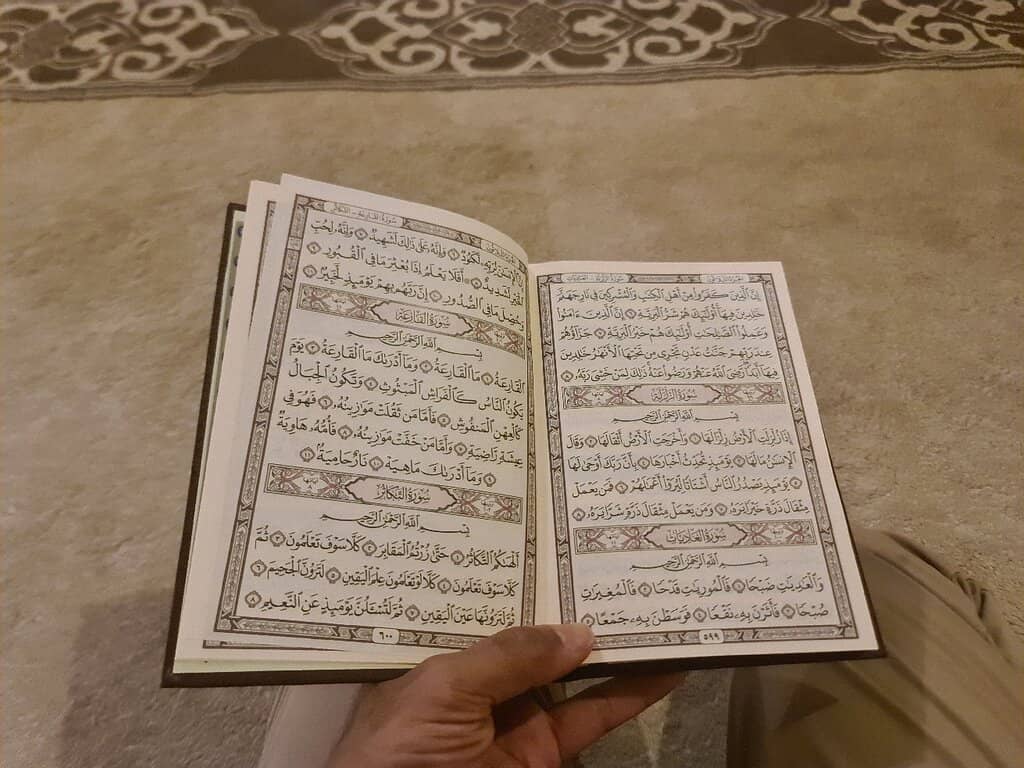 إِنَّ ٱلَّذِينَ كَفَرُوا۟ مِنْ أَهْلِ ٱلْكِتَٰبِ وَٱلْمُشْرِكِينَ فِى نَارِ جَهَنَّمَ
خَٰلِدِينَ فِيهَآ أُو۟لَٰٓئِكَ هُمْ شَرُّ ٱلْبَرِيَّةِ ٦ إِنَّ ٱلَّذِينَ ءَامَنُوا۟
وَعَمِلُوا۟ ٱلصَّٰلِحَٰتِ أُو۟لَٰٓئِكَ هُمْ خَيْرُ ٱلْبَرِيَّةِ ٧ جَزَآؤُهُمْ
عِندَ رَبِّهِمْ جَنَّٰتُ عَدْنٍ تَجْرِى مِن تَحْتِهَا ٱلْأَنْهَٰرُ خَٰلِدِينَ
فِيهَآ أَبَدًا رَّضِىَ ٱللَّهُ عَنْهُمْ وَرَضُوا۟ عَنْهُ ذَٰلِكَ لِمَنْ خَشِىَ رَبَّهُۥ ٨
سُورَةُ الزَّلْزَلَةِ
بِسْمِ ٱللَّهِ ٱلرَّحْمَٰنِ ٱلرَّحِيمِ
إِذَا زُلْزِلَتِ ٱلْأَرْضُ زِلْزَالَهَا ١ وَأَخْرَجَتِ ٱلْأَرْضُ أَثْقَالَهَا ٢ وَقَالَ
ٱلْإِنسَٰنُ مَا لَهَا ٣ يَوْمَئِذٍ تُحَدِّثُ أَخْبَارَهَا ٤ بِأَنَّ رَبَّكَ أَوْحَىٰ لَهَا
٥ يَوْمَئِذٍ يَصْدُرُ ٱلنَّاسُ أَشْتَاتًا لِّيُرَوْا۟ أَعْمَٰلَهُمْ ٦ فَمَن يَعْمَلْ
مِثْقَالَ ذَرَّةٍ خَيْرًا يَرَهُۥ ٧ وَمَن يَعْمَلْ مِثْقَالَ ذَرَّةٍ شَرًّا يَرَهُۥ ٨
سُورَةُ العَادِيَاتِ
بِسْمِ ٱللَّهِ ٱلرَّحْمَٰنِ ٱلرَّحِيمِ
وَٱلْعَٰدِيَٰتِ ضَبْحًا ١ فَٱلْمُورِيَٰتِ قَدْحًا ٢ فَٱلْمُغِيرَٰتِ
صُبْحًا ٣ فَأَثَرْنَ بِهِۦ نَقْعًا ٤ فَوَسَطْنَ بِهِۦ جَمْعًا ٥
٥٩٩
سُورَةُ القَارِعَةِ - التَّكَاثُرِ
إِنَّ ٱلْإِنسَٰنَ لِرَبِّهِۦ لَكَنُودٌ ٦ وَإِنَّهُۥ عَلَىٰ ذَٰلِكَ لَشَهِيدٌ ٧ وَإِنَّهُۥ لِحُبِّ
ٱلْخَيْرِ لَشَدِيدٌ ٨ أَفَلَا يَعْلَمُ إِذَا بُعْثِرَ مَا فِى ٱلْقُبُورِ ٩
وَحُصِّلَ مَا فِى ٱلصُّدُورِ ١٠ إِنَّ رَبَّهُم بِهِمْ يَوْمَئِذٍ لَّخَبِيرٌۢ ١١
سُورَةُ القَارِعَةِ
بِسْمِ ٱللَّهِ ٱلرَّحْمَٰنِ ٱلرَّحِيمِ
ٱلْقَارِعَةُ ١ مَا ٱلْقَارِعَةُ ٢ وَمَآ أَدْرَىٰكَ مَا ٱلْقَارِعَةُ ٣ يَوْمَ
يَكُونُ ٱلنَّاسُ كَٱلْفَرَاشِ ٱلْمَبْثُوثِ ٤ وَتَكُونُ ٱلْجِبَالُ
كَٱلْعِهْنِ ٱلْمَنفُوشِ ٥ فَأَمَّا مَن ثَقُلَتْ مَوَٰزِينُهُۥ ٦ فَهُوَ فِى
عِيشَةٍ رَّاضِيَةٍ ٧ وَأَمَّا مَنْ خَفَّتْ مَوَٰزِينُهُۥ ٨ فَأُمُّهُۥ هَاوِيَةٌ
٩ وَمَآ أَدْرَىٰكَ مَا هِيَهْ ١٠ نَارٌ حَامِيَةٌۢ ١١
سُورَةُ التَّكَاثُرِ
بِسْمِ ٱللَّهِ ٱلرَّحْمَٰنِ ٱلرَّحِيمِ
أَلْهَىٰكُمُ ٱلتَّكَاثُرُ ١ حَتَّىٰ زُرْتُمُ ٱلْمَقَابِرَ ٢ كَلَّا سَوْفَ تَعْلَمُونَ ٣ ثُمَّ
كَلَّا سَوْفَ تَعْلَمُونَ ٤ كَلَّا لَوْ تَعْلَمُونَ عِلْمَ ٱلْيَقِينِ ٥ لَتَرَوُنَّ ٱلْجَحِيمَ ٦
ثُمَّ لَتَرَوُنَّهَا عَيْنَ ٱلْيَقِينِ ٧ ثُمَّ لَتُسْـَٔلُنَّ يَوْمَئِذٍ عَنِ ٱلنَّعِيمِ ٨
٦٠٠